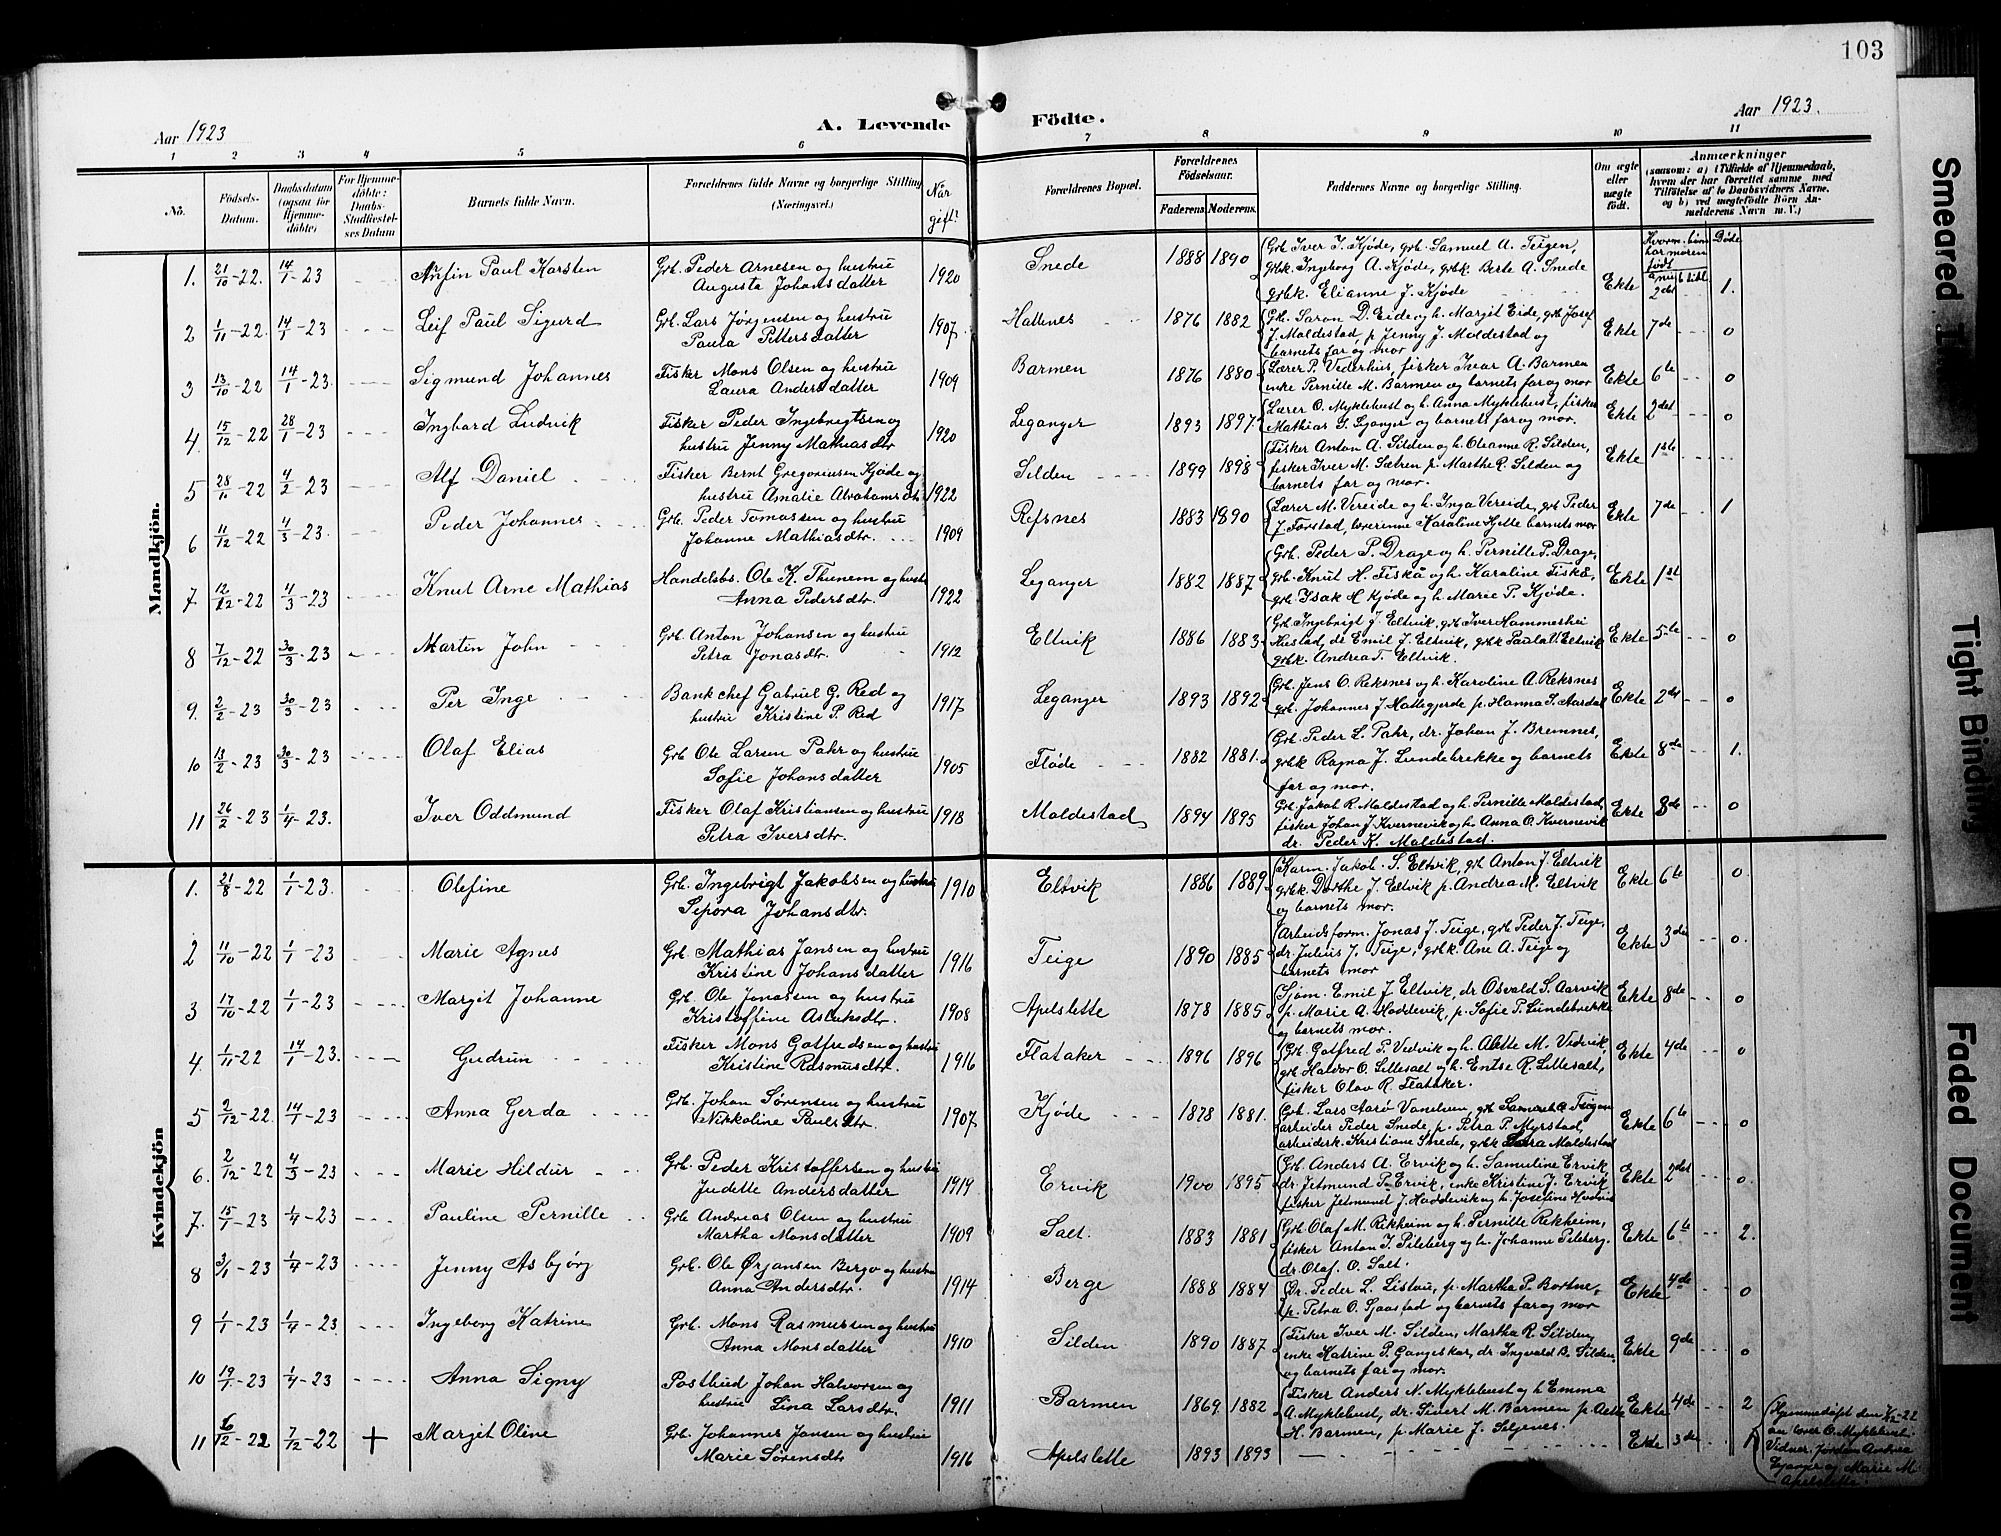 103
Aar 1923
A. Levende Födte.
Aar 1923.
1 2 3 4 5 6 7 8 9 10 11
No.
Födsels-Datum.
Daabsdatum (ogsaa for Hjemmedöbte)
For Hjemmedöbte: Daabs-Stadfæstelses Datum
Barnets fulde Navn.
Forældrenes fulde Navne og borgerlige Stilling (Næringsvei.)
Når gift?
Forældrenes Bopæl.
Forældrenes Födselsaar.
Faderens. Moderens.
Faddernes Navne og borgerlige Stilling.
Om ægte eller uægte födt.
Anmærkninger
(saasom: a) i Tilfælde af Hjemmedaab, hvem der har forrettet samme med Tilföielse af to Daabsvidners Navne, og b) ved uægtefödte Börn Anmelderens Navn m. V.)
Hvorm. børn har moren født
Døde
Mandkjön.
1. 21/10-22 14/1-23 Arfin Paul Karsten Grb. Peder Arnesen og hustru Augusta Johansdatter 1920 Snede 1888 1890 Grb. Iver J. Kjøde, grb. Samuel A. Teigen, grbk. Ingeborg A. Kjøde, grbk. Berte A. Snede grbk. Elianne J. Kjøde Ekte 2det 1.
2 1/11-22 14/1-23 Leif Paul Sigurd Grb. Lars Jørgensen og hustru Paula Pettersdatter 1907 Hallenes 1876 1882 Grb. Saron D. Eide og h. Margit Eide, grb Josef J. Maldestad, p Jenny J. Maldestad og barnets far og mor Ekte 7de 0
3 13/10-22 14/1-23 Sigmund Johannes Fisker Mons Olsen og hustru Laura Andersdatter 1909 Barmen 1876 1880 Lærer P. Vederhus, fisker Ivar A. Barmen enke Pernille M. Barmen og barnets far og mor Ekte 6te 0
4. 15/12-22 28/1-23 Ingbard Ludvik Fisker Peder Ingebrigtsen og hustru Jenny Mathiasdtr 1920 Leganger 1893 1897 Lærer O. Myklebust og h. Anna Myklebust, fisker Mathias S. Leganger og barnets far og mor. Ekte 2det 0
5 28/11-22 4/2-23 Alf Daniel Fisker Bernt Gregoriusen Kjøde og hustru Amalie Abrahamsdtr 1922 Silden 1899 1898 Fisker Anton A. Silden og h. Oleanne R. Silden, fisker Iver M. Sætren p. Marthe R. Silden og barnets far og mor. Ekte 1ste
6 11/12-22 4/3-23 Peder Johannes Grb. Peder Tomassen og hustru Johanne Mathiasdtr. 1909 Refsnes 1883 1890 Lærer M. Vereide og h. Inga Vereide, grb Peder J. Forstad, lærerinne Karoline Hjelle barnets mor Ekte 7de 1
7 12/12-22 4/3-23 Knut Arne Mathias Handelsbs. Ole K. Thunem og hustru Anna Pedersdtr. 1922 Leganger 1882 1887 Grb. Peder P. Drage og h. Pernille P. Drage, grb. Knut H. Fiskå og h. Karoline Fiskå, grb Isak H Kjøde og h. Marie P. Kjøde. Ekte 1st
8 7/12-22 30/3-23 Martin John Grb. Anton Johansen og hustru Petra Jonasdtr. 1912 Eltvik 1886 1883 Grb. Ingebrigt J. Eltvik, grb Iver Hammershei Hustad, dr. Emil J. Eltvik, grbk Paula V. Eltvik grbk. Andrea T. Eltvik. Ekte 5te 0
9. 2/2-23 30/3-23 Per Inge Bankchef Gabriel G. Red og hustru Kristine P. Red 1917 Leganger 1893 1892 Grb. Jens O. Reksnes og h. Karoline A. Reksnes grb. Johannes J. Hattegjerde p. Hanna I. Aardal Ekte 2det 0
10 13/2-23 30/3-23 Olaf Elias Grb Ole Larsen Pahr og hustru Sofie Johansdatter 1905 Fløde 1882 1881. Grb. Peder L. Pahr, dr. Johan J. Bremnes, grbk Ragna J. Lundebrekke og barnets far og mor. Ekte 8de 1.
11 26/2-23 1/4-23. Iver Oddmund Fisker Olaf Kristiansen og hustru Petra Iversdtr. 1918 Maldestad 1894 1895 Grb. Jakob R. Maldestad og h. Pernille Maldestad, fisker Johan J. Kvernevik og h. Anna O. Kvernevik dr. Peder K. Maldestad. Ekte 3de 0
Kvindekjön
1. 21/8-22 1/1-23. Olefine Grb. Ingebrigt Jakobsen og hustru Sepora Johansdtr. 1910 Eltvik 1886 1889 Karm. Jakob. S. Eltvik, grb Anton J. Eltvik grbk. Dorthe J. Eltvik p. Andrea M. Eltvik og barnets mor. Ekte 6te 0.
2 11/10-22 1/1-23 Marie Agnes Grb. Mathias Jansen og hustru Kristine Johansdatter 1916 Teige 1890 1885 Arbeidsform. Jonas J. Teige, grb Peder J. Teige, dr. Julius J. Teige, grbk. Ane A. Teige og barnets mor Ekte 3de 0.
3 17/10-22 1/1-23 Margit Johanne Grb. Ole Jonassen og hustru Kristoffine Aslaksdtr. 1908 Apelslette 1878 1885 Sjøm. Emil J. Eltvik, dr Osvald S. Aarvik p. Marie A. Hoddevik, p. Sofie P. Lundebrekke og barnets mor. Ekte 8de 0
4. 1/11-22 14/1-23. Gudrun Fisker Mons Gotfredsen og hustru Kristine Rasmusdtr. 1916 Flataker 1896 1896 Grb. Gotfred P. Vedvik og h. Alette M. Vedvik, grb Haldor O. Lillesalt og h. Entse R. Lillesalt, fisker Olav R. Flataker. Ekte 4de 0
5 2/12-22. 14/1-23 Anna Gerda Grb. Johan Sørensen og hustru Nikkoline Paulsdtr. 1907 Kjøde 1878 1881. Grb. Lars Aarø Vanelven, grb Samuel A Teigen arbeider Peder Snede, p. Petra P. Myrstad, arbeiderk. Kristiane Snede, grbk Maldestad Ekte 6te 0
6. 2/12-22 4/3-23 Marie Hildur Grb. Peder Kristoffersen og hustru Judette Andersdatter 1919 Ervik 1900 1895 Grb. Anders A. Ervik og h. Samuline Ervik dr. Jetmund P. Ervik, enke Kristine J. Ervik fisker Jetmund J. Hoddevik og h. Josefine Ekte 2det 0.
7. 15/1-23 1/4-23 Pauline Pernille Grb Andreas Olsen og hustru Martha Monsdatter 1909 Salt. 1883 1881 Grb. Olaf M. Rekheim og h. Pernille Rekheim, fisker Anton I. Pileberg og h. Johanne Pileberg. dr. Olaf. O. Salt. Ekte 6te 2.
8 3/1-23 1/4-23 Jenny Asbjørg Grb. Ole Ørjansen Berge og hustru Anna Andersdtr. 1914 Berge 1888 1884 Dr. Peder L. Listau, p. Martha P. Bortne, p. Petra O. Sjaastad og barnets far og mor Ekte 4de 0
9 1/1-23 1/4-23. Ingeborg Katrine Grb. Mons Rasmussen og hustru Anna Monsdatter 1910 Silden 1890 1887 Fisker Iver M. Silden, Martha R. Silden, enke Katrine P. Gangeskar, dr. Ingvald B. Silden, og barnets far og mor. Ekte 9de 0
10 19/1-23 1/4-23 Anna Signy Postbud Johan Halvorsen og hustru Lina Larsdtr. 1911 Barmen 1869 1882 Fisker Anders N. Myklebust og h Emma A. Myklebust, dr. Sivert M. Barmen p. Aette H. Barmen, p. Marie J. Seljenes. Ekte 4de 2
11 6/12-22 7/12-22 + Margit Oline Grb. Johannes Jansen og hustru Marie Sørensdtr 1916 Apelslette 1893 1893 Ekte 3de 1
Hjemmedøpt den 7/12-22 av lærer O. Myklebust. Vidner. Jordm Andrea og Marie M. Apelslette.
Smeared
Tight Binding
Faded Document